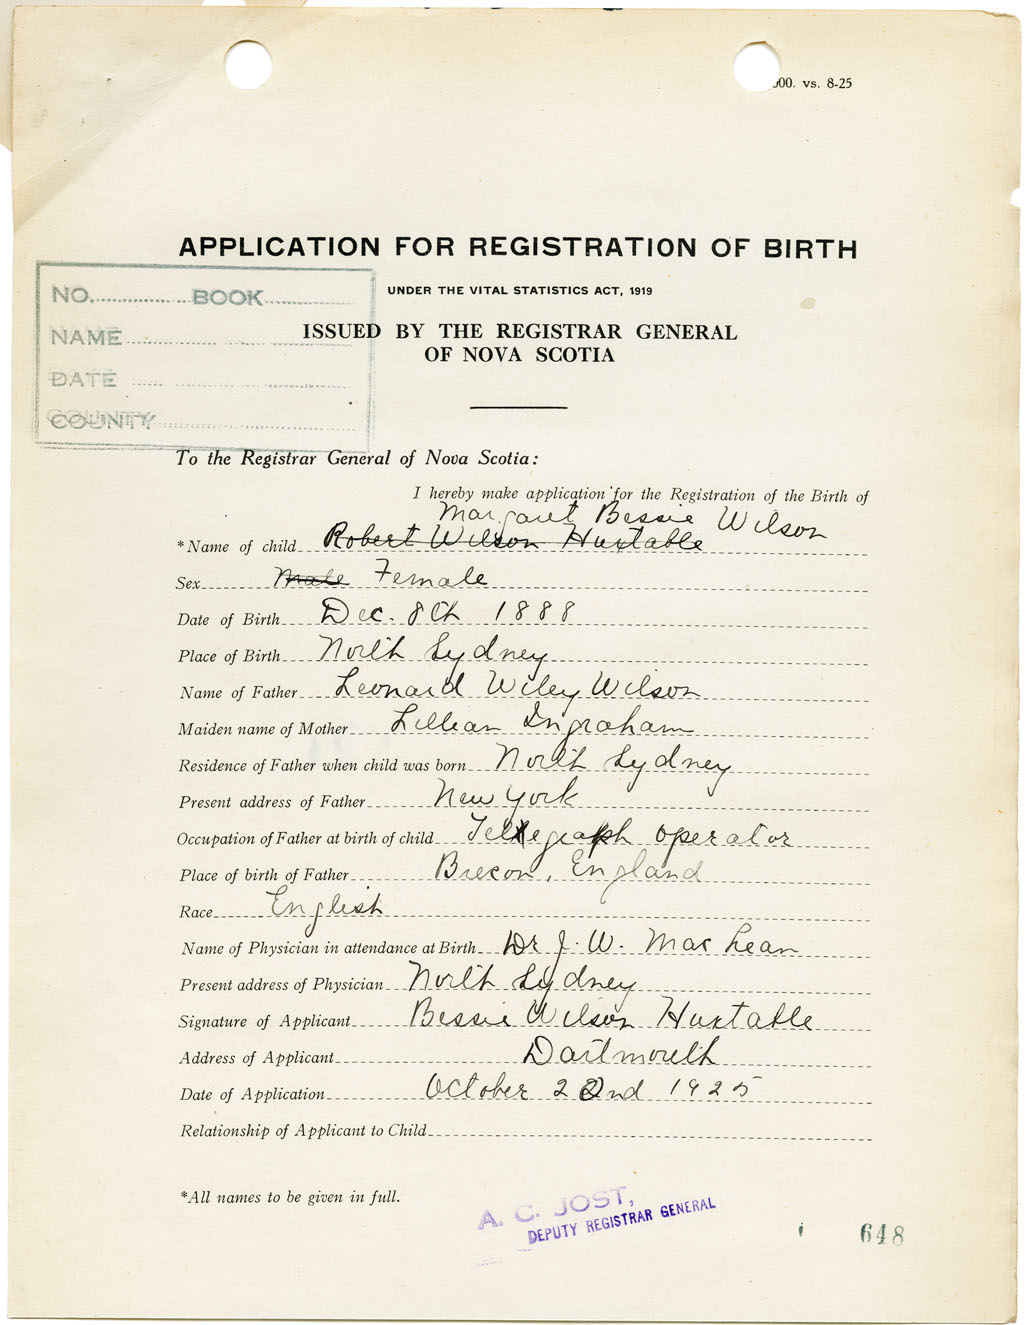 000. vs. 8-25
APPLICATION FOR REGISTRATION OF BIRTH
UNDER THE VITAL STATISTICS ACT, 1919
ISSUED BY THE REGISTRAR GENERAL
OF NOVA SCOTIA
NO. BOOK
NAME
DATE
COUNTY
To the Registrar General of Nova Scotia:
I hereby make application for the Registration of the Birth of
Margaret Bessie Wilson
*Name of child Robert Wilson Huxtable
Sex Male Female
Date of Birth Dec. 8th 1888
Place of Birth North Sydney
Name of Father Leonard Wiley Wilson
Maiden name of Mother Lillian Ingraham
Residence of Father when child was born North Sydney
Present address of Father New York
Occupation of Father at birth of child Telegraph operator
Place of birth of Father Brecon, England
Race English
Name of Physician in attendance at Birth Dr J. W. MacLean
Present address of Physician North Sydney
Signature of Applicant Bessie Wilson Huxtable
Address of Applicant Dartmouth
Date of Application October 22nd 1925
Relationship of Applicant to Child
*All names to be given in full.
A. C. JOST,
DEPUTY REGISTRAR GENERAL
648